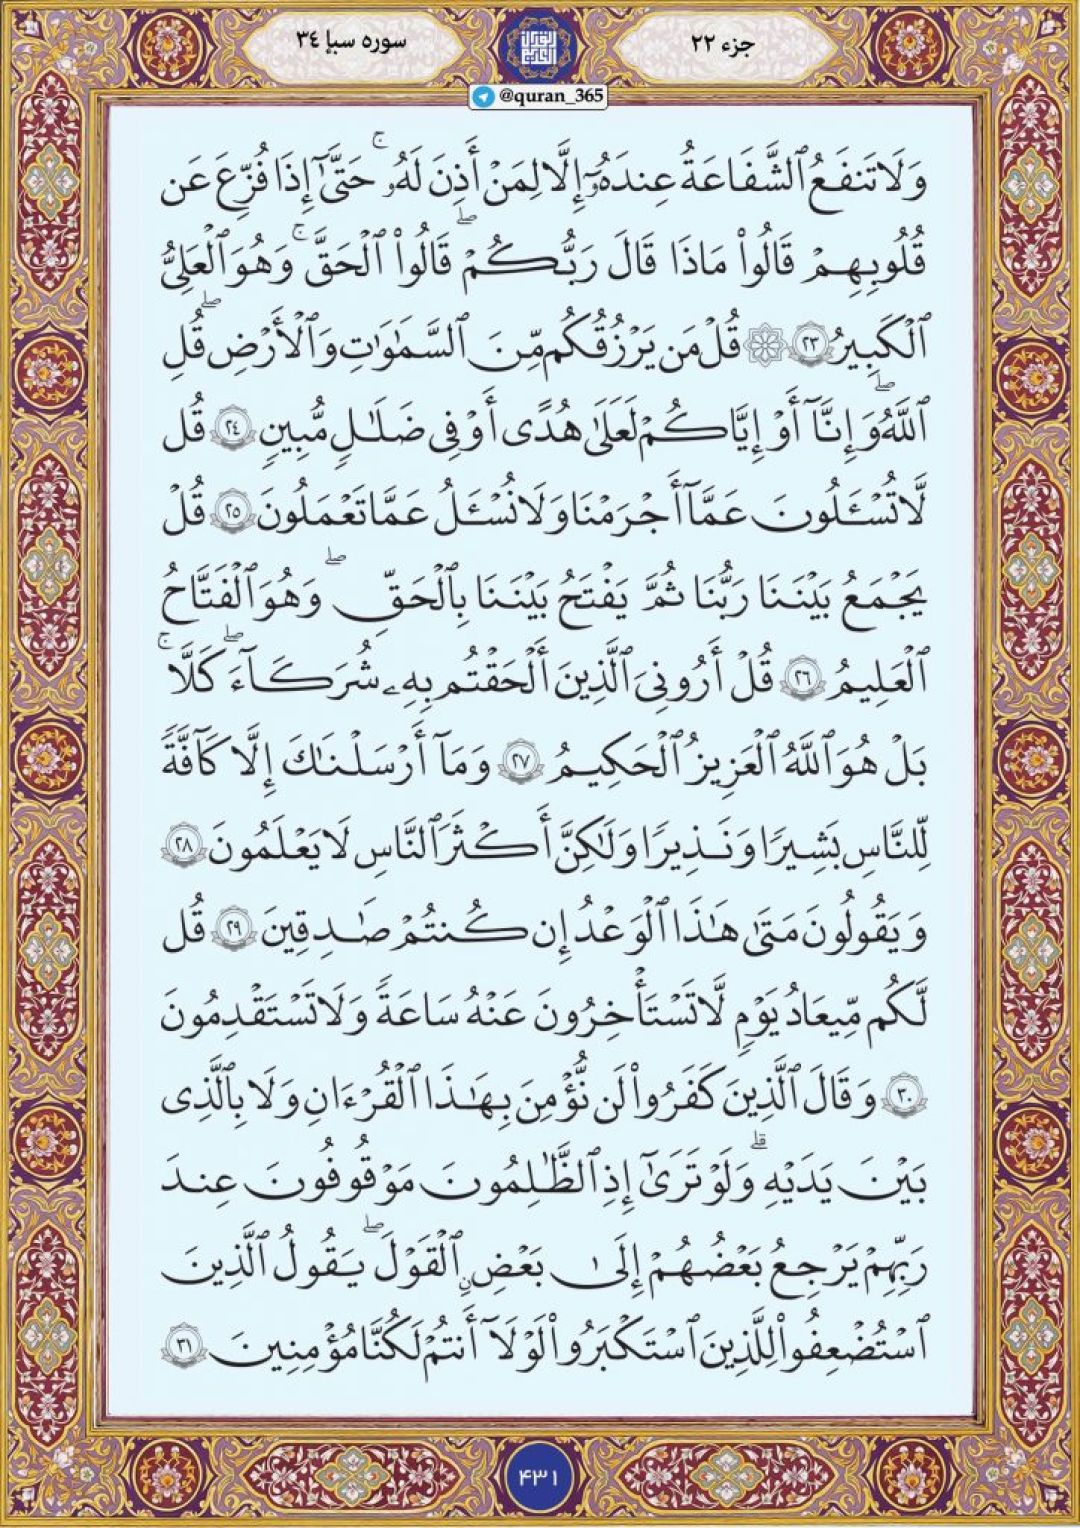 جزء ۲۲
سوره سبإ ۳۴
@quran_365
وَلَا تَنفَعُ ٱلشَّفَٰعَةُ عِندَهُۥٓ إِلَّا لِمَنْ أَذِنَ لَهُۥۚ حَتَّىٰٓ إِذَا فُزِّعَ عَن
قُلُوبِهِمْ قَالُوا۟ مَاذَا قَالَ رَبُّكُمْۖ قَالُوا۟ ٱلْحَقَّۚ وَهُوَ ٱلْعَلِىُّ
ٱلْكَبِيرُ ۲۳ ۞ قُلْ مَن يَرْزُقُكُم مِّنَ ٱلسَّمَٰوَٰتِ وَٱلْأَرْضِۖ قُلِ
ٱللَّهُۖ وَإِنَّآ أَوْ إِيَّاكُمْ لَعَلَىٰ هُدًى أَوْ فِى ضَلَٰلٍ مُّبِينٍ ۲۴ قُل
لَّا تُسْـَٔلُونَ عَمَّآ أَجْرَمْنَا وَلَا نُسْـَٔلُ عَمَّا تَعْمَلُونَ ۲۵ قُلْ
يَجْمَعُ بَيْنَنَا رَبُّنَا ثُمَّ يَفْتَحُ بَيْنَنَا بِٱلْحَقِّۖ وَهُوَ ٱلْفَتَّاحُ
ٱلْعَلِيمُ ۲۶ قُلْ أَرُونِىَ ٱلَّذِينَ أَلْحَقْتُم بِهِۦ شُرَكَآءَۖ كَلَّاۚ
بَلْ هُوَ ٱللَّهُ ٱلْعَزِيزُ ٱلْحَكِيمُ ۲۷ وَمَآ أَرْسَلْنَٰكَ إِلَّا كَآفَّةً
لِّلنَّاسِ بَشِيرًا وَنَذِيرًا وَلَٰكِنَّ أَكْثَرَ ٱلنَّاسِ لَا يَعْلَمُونَ ۲۸
وَيَقُولُونَ مَتَىٰ هَٰذَا ٱلْوَعْدُ إِن كُنتُمْ صَٰدِقِينَ ۲۹ قُل
لَّكُم مِّيعَادُ يَوْمٍ لَّا تَسْتَـْٔخِرُونَ عَنْهُ سَاعَةً وَلَا تَسْتَقْدِمُونَ
۳۰ وَقَالَ ٱلَّذِينَ كَفَرُوا۟ لَن نُّؤْمِنَ بِهَٰذَا ٱلْقُرْءَانِ وَلَا بِٱلَّذِى
بَيْنَ يَدَيْهِۗ وَلَوْ تَرَىٰٓ إِذِ ٱلظَّٰلِمُونَ مَوْقُوفُونَ عِندَ
رَبِّهِمْ يَرْجِعُ بَعْضُهُمْ إِلَىٰ بَعْضٍ ٱلْقَوْلَۖ يَقُولُ ٱلَّذِينَ
ٱسْتُضْعِفُوا۟ لِلَّذِينَ ٱسْتَكْبَرُوا۟ لَوْلَآ أَنتُمْ لَكُنَّا مُؤْمِنِينَ ۳۱
۴۳۱